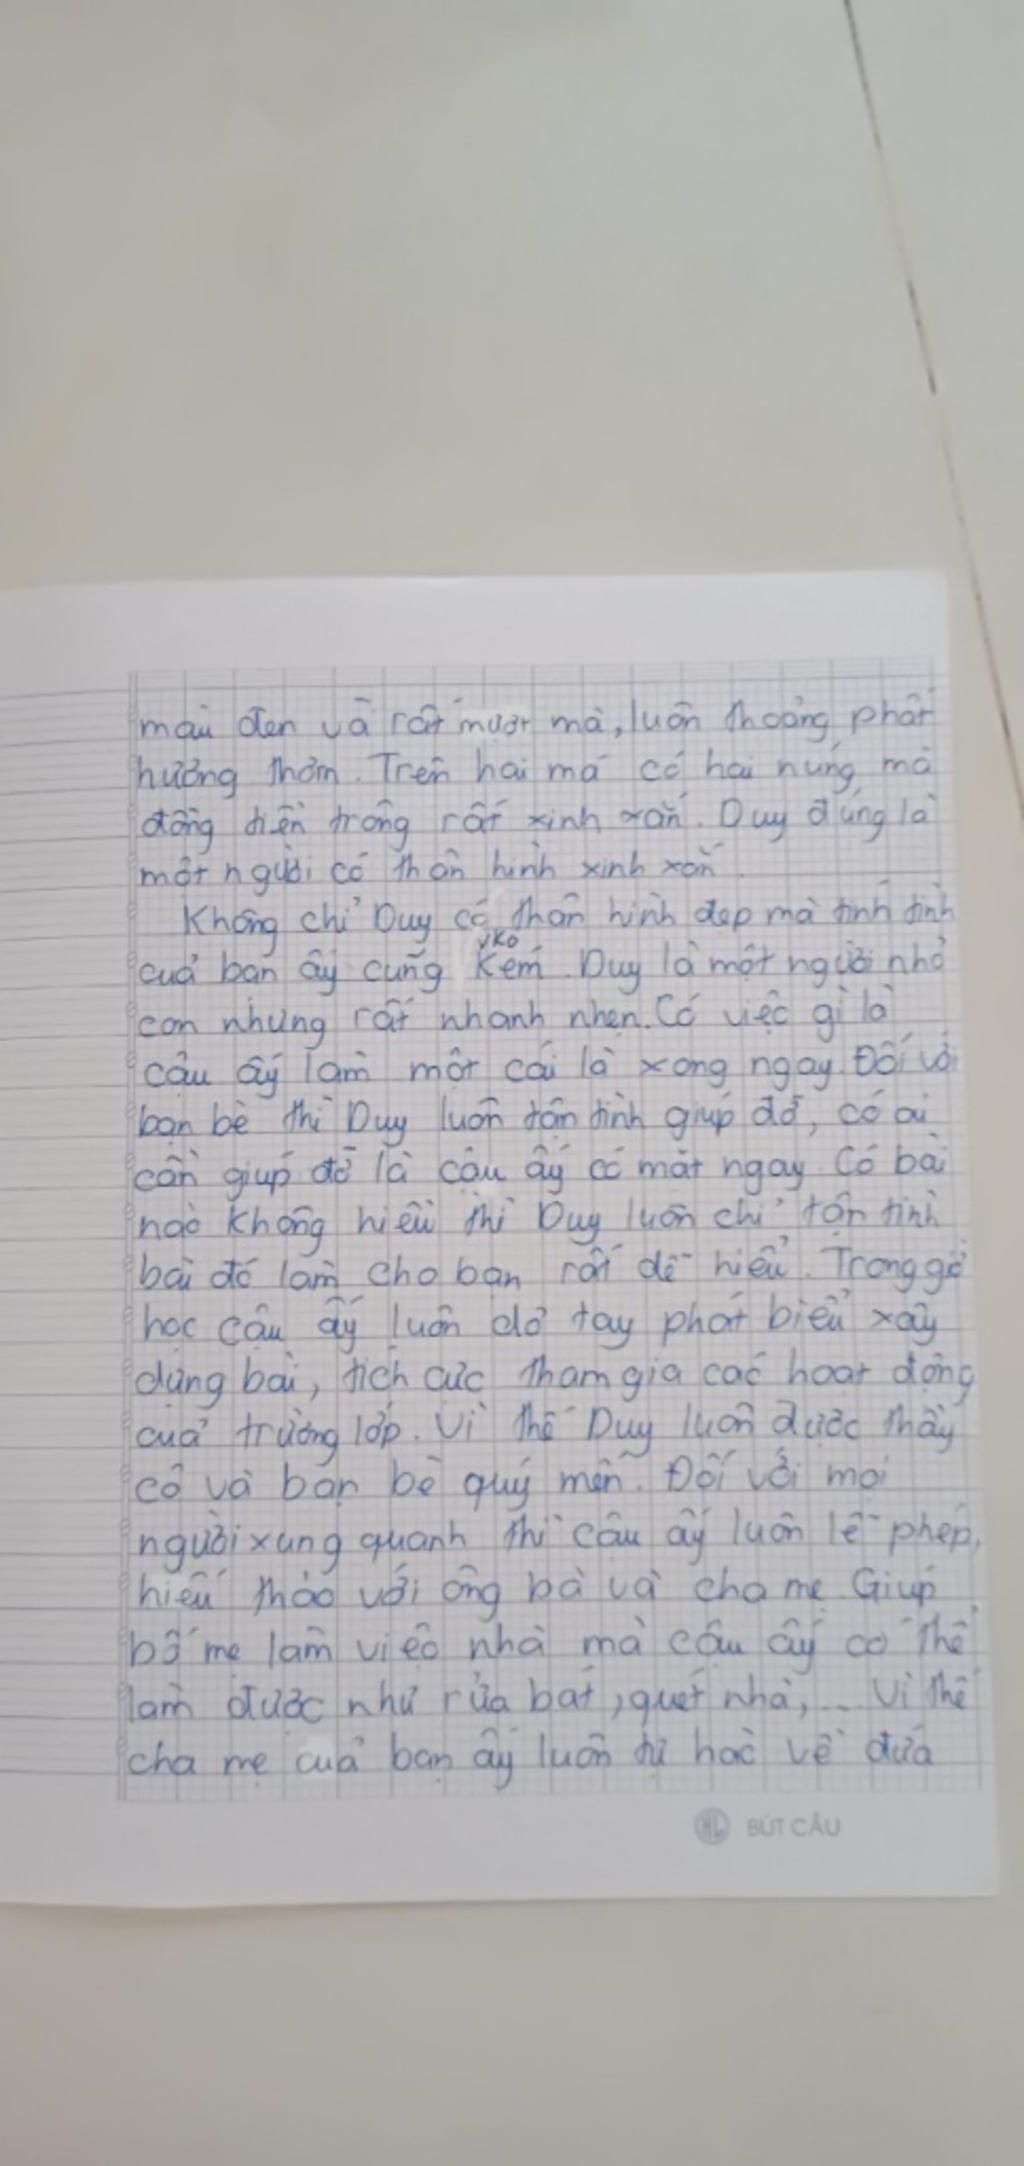 màu đen và rất mượt mà, luôn thoảng phất
hương thơm. Trên hai má có hai núng má
đồng tiền trông rất xinh xắn. Duy đúng là
một người có thân hình xinh xắn.
Không chỉ Duy có thân hình đẹp mà tính tình
của bạn ấy cũng ko kém. Duy là một người nhỏ
con nhưng rất nhanh nhẹn. Có việc gì là
cậu ấy làm một cái là xong ngay. Đối với
bạn bè thì Duy luôn tận tình giúp đỡ, có ai
cần giúp đỡ là cậu ấy có mặt ngay. Có bài
nào không hiểu thì Duy luôn chỉ tận tình
bài đó làm cho bạn rất dễ hiểu. Trong giờ
học cậu ấy luôn dơ tay phát biểu xây
dựng bài, tích cực tham gia các hoạt động
của trường lớp. Vì thế Duy luôn được thầy
cô và bạn bè quý mến. Đối với mọi
người xung quanh thì cậu ấy luôn lễ phép,
hiếu thảo với ông bà và cha mẹ. Giúp
bố mẹ làm việc nhà mà cậu ấy có thể
làm được như rửa bát, quét nhà,... Vì thế
cha mẹ của bạn ấy luôn tự hào về đứa
BÚT CÂU